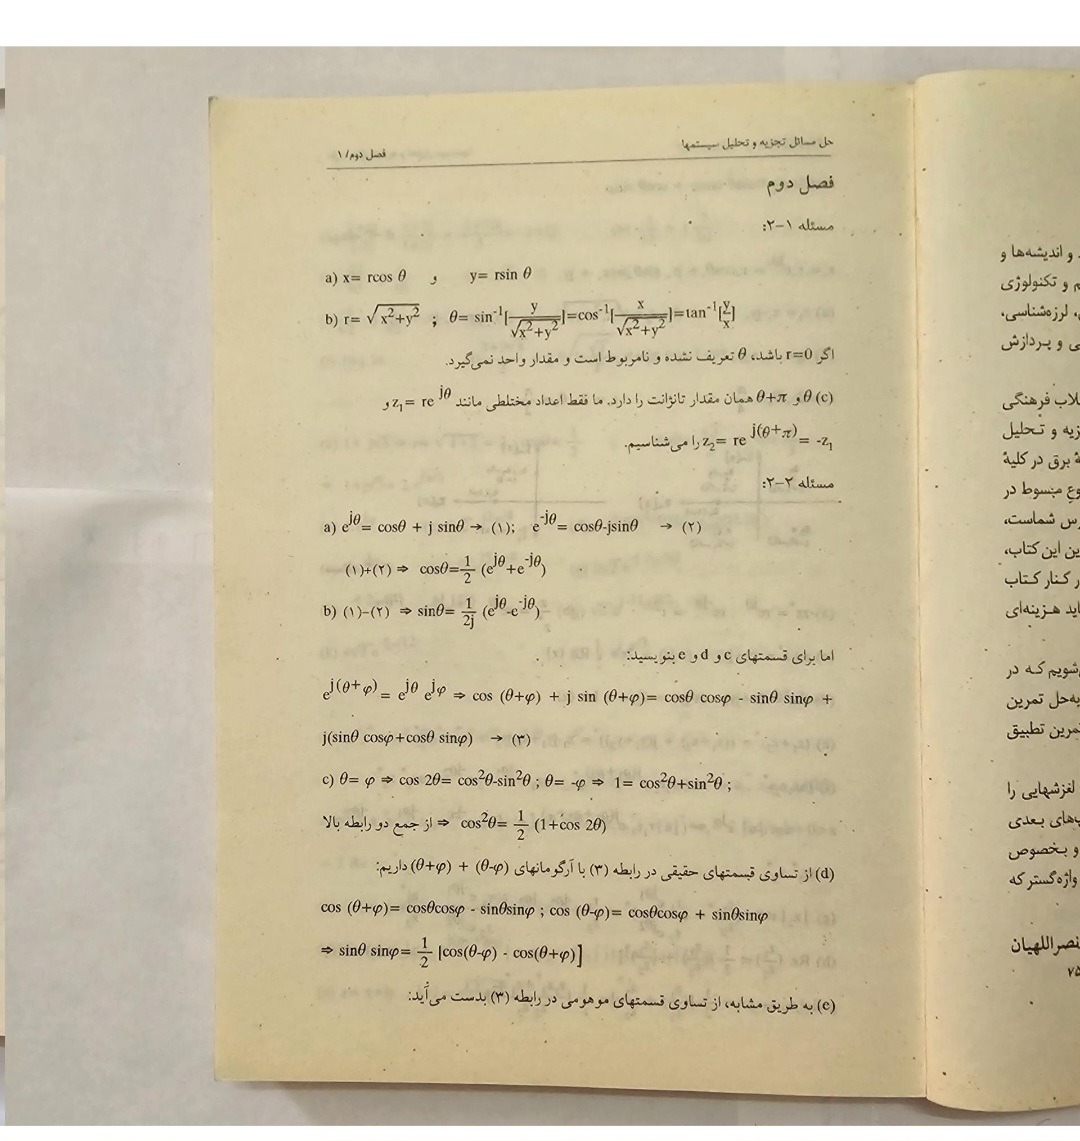 حل مسائل تجزیه و تحلیل سیستمها
فصل دوم/۱
فصل دوم
مسئله ۱–۲:
a) x= rcos θ و y= rsin θ
b) r= √x²+y² ; θ= sin⁻¹[y/√x²+y²]=cos⁻¹[x/√x²+y²]=tan⁻¹[y/x]
اگر r=0 باشد، θ تعریف نشده و نامربوط است و مقدار واحد نمی‌گیرد.
(c) θ و θ+π همان مقدار تانژانت را دارد. ما فقط اعداد مختلطی مانند z₁= re^jθ و
z₂= re^j(θ+π)= -z₁ را می‌شناسیم.
مسئله ۲–۲:
a) e^jθ= cosθ + j sinθ → (۱); e^-jθ= cosθ-jsinθ → (۲)
(۱)+(۲) ⇒ cosθ=1/2 (e^jθ+e^-jθ)
b) (۱)–(۲) ⇒ sinθ= 1/2j (e^jθ-e^-jθ)
اما برای قسمتهای c و d و e بنویسید:
e^j(θ+φ)= e^jθ e^jφ ⇒ cos (θ+φ) + j sin (θ+φ)= cosθ cosφ - sinθ sinφ +
j(sinθ cosφ+cosθ sinφ) → (۳)
c) θ= φ ⇒ cos 2θ= cos²θ-sin²θ ; θ= -φ ⇒ 1= cos²θ+sin²θ ;
از جمع دو رابطه بالا ⇒ cos²θ= 1/2 (1+cos 2θ)
(d) از تساوی قسمتهای حقیقی در رابطه (۳) با آرگومانهای (θ-φ) + (θ+φ) داریم:
cos (θ+φ)= cosθcosφ - sinθsinφ ; cos (θ-φ)= cosθcosφ + sinθsinφ
⇒ sinθ sinφ= 1/2 [cos(θ-φ) - cos(θ+φ)]
(e) به طریق مشابه، از تساوی قسمتهای موهومی در رابطه (۳) بدست می‌آید:
و اندیشه‌ها و
م و تکنولوژی
، لرزه‌شناسی،
ی و پردازش
لاب فرهنگی
زیه و تحلیل
برق در کلیهٔ
وع مبسوط در
رس شماست،
ین این کتاب،
ر کنار کتاب
اید هزینه‌ای
شویم که در
به‌حل تمرین
مرین تطبیق
لغزشهایی را
پ‌های بعدی
و بخصوص
واژه‌گستر که
نصراللهیان
۷۵